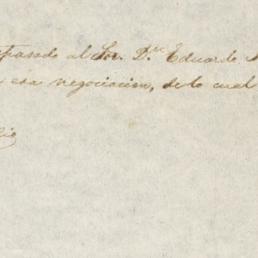 pasado al Sor. Dn. Eduardo
esa negociacion, de lo cual